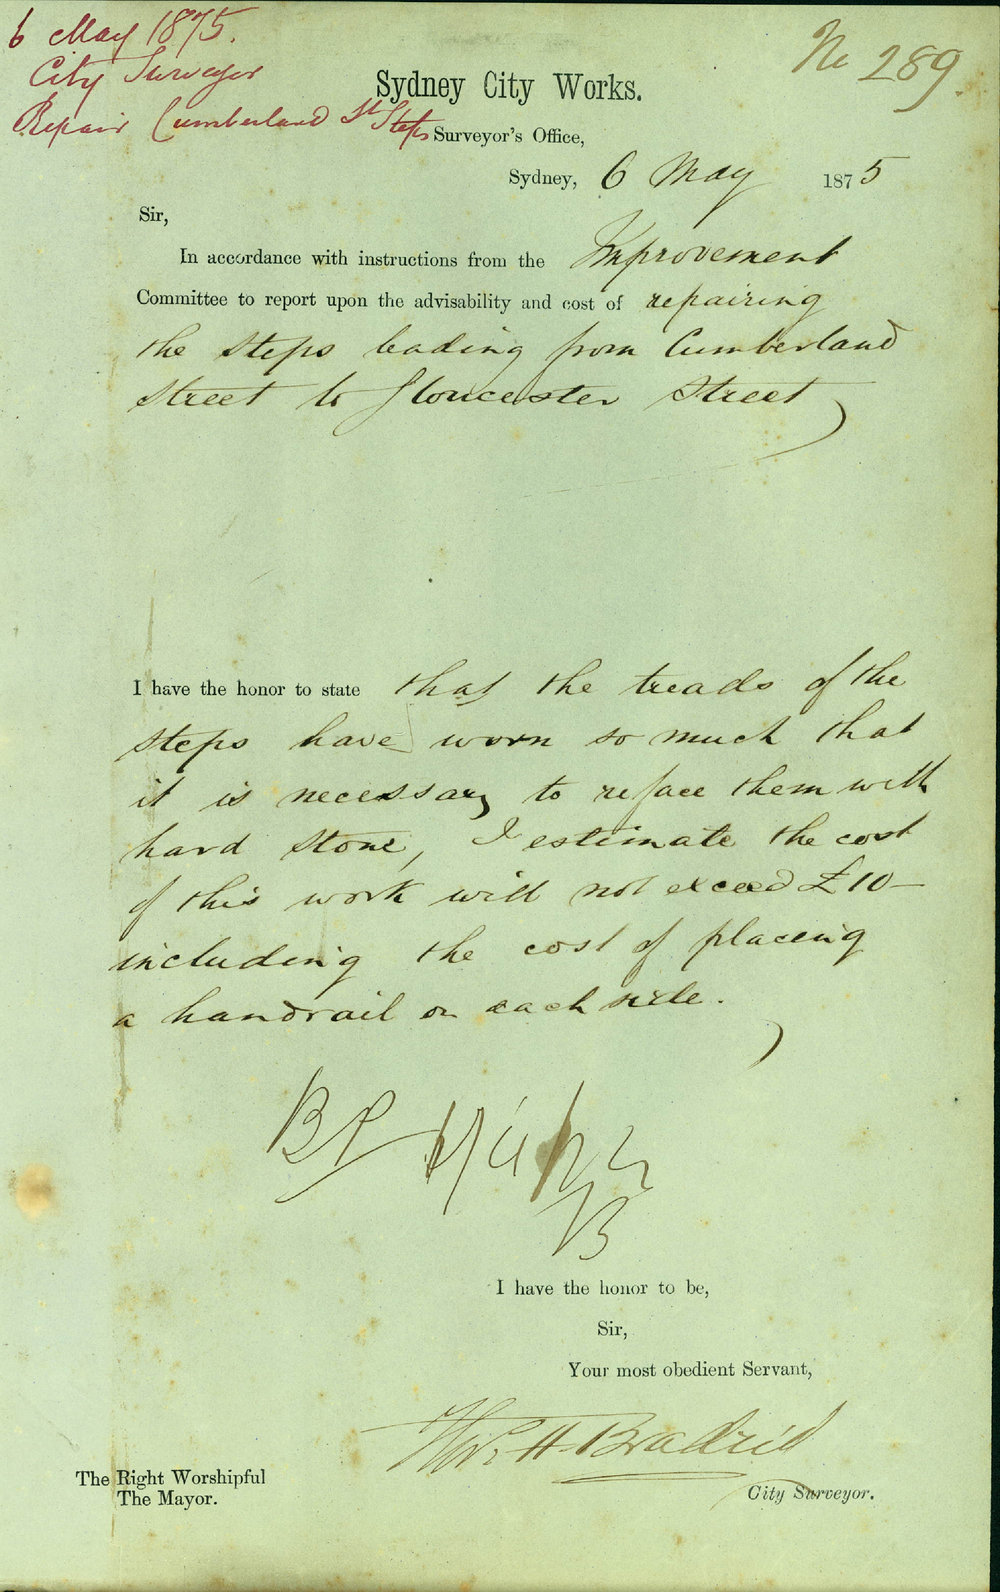 6 May 1875.
City Surveyor
Repair Cumberland St Steps
No 289.
Sydney City Works.
Surveyor's Office,
Sydney, 6 May 1875
Sir,
In accordance with instructions from the Improvement
Committee to report upon the advisability and cost of repairing
the steps leading from Cumberland
Street to Gloucester Street
I have the honor to state that the treads of the
steps have worn so much that
it is necessary to reface them with
hard stone, I estimate the cost
of this work will not exceed £10—
including the cost of placing
a handrail on each side.
I have the honor to be,
Sir,
Your most obedient Servant,
City Surveyor.
The Right Worshipful
The Mayor.